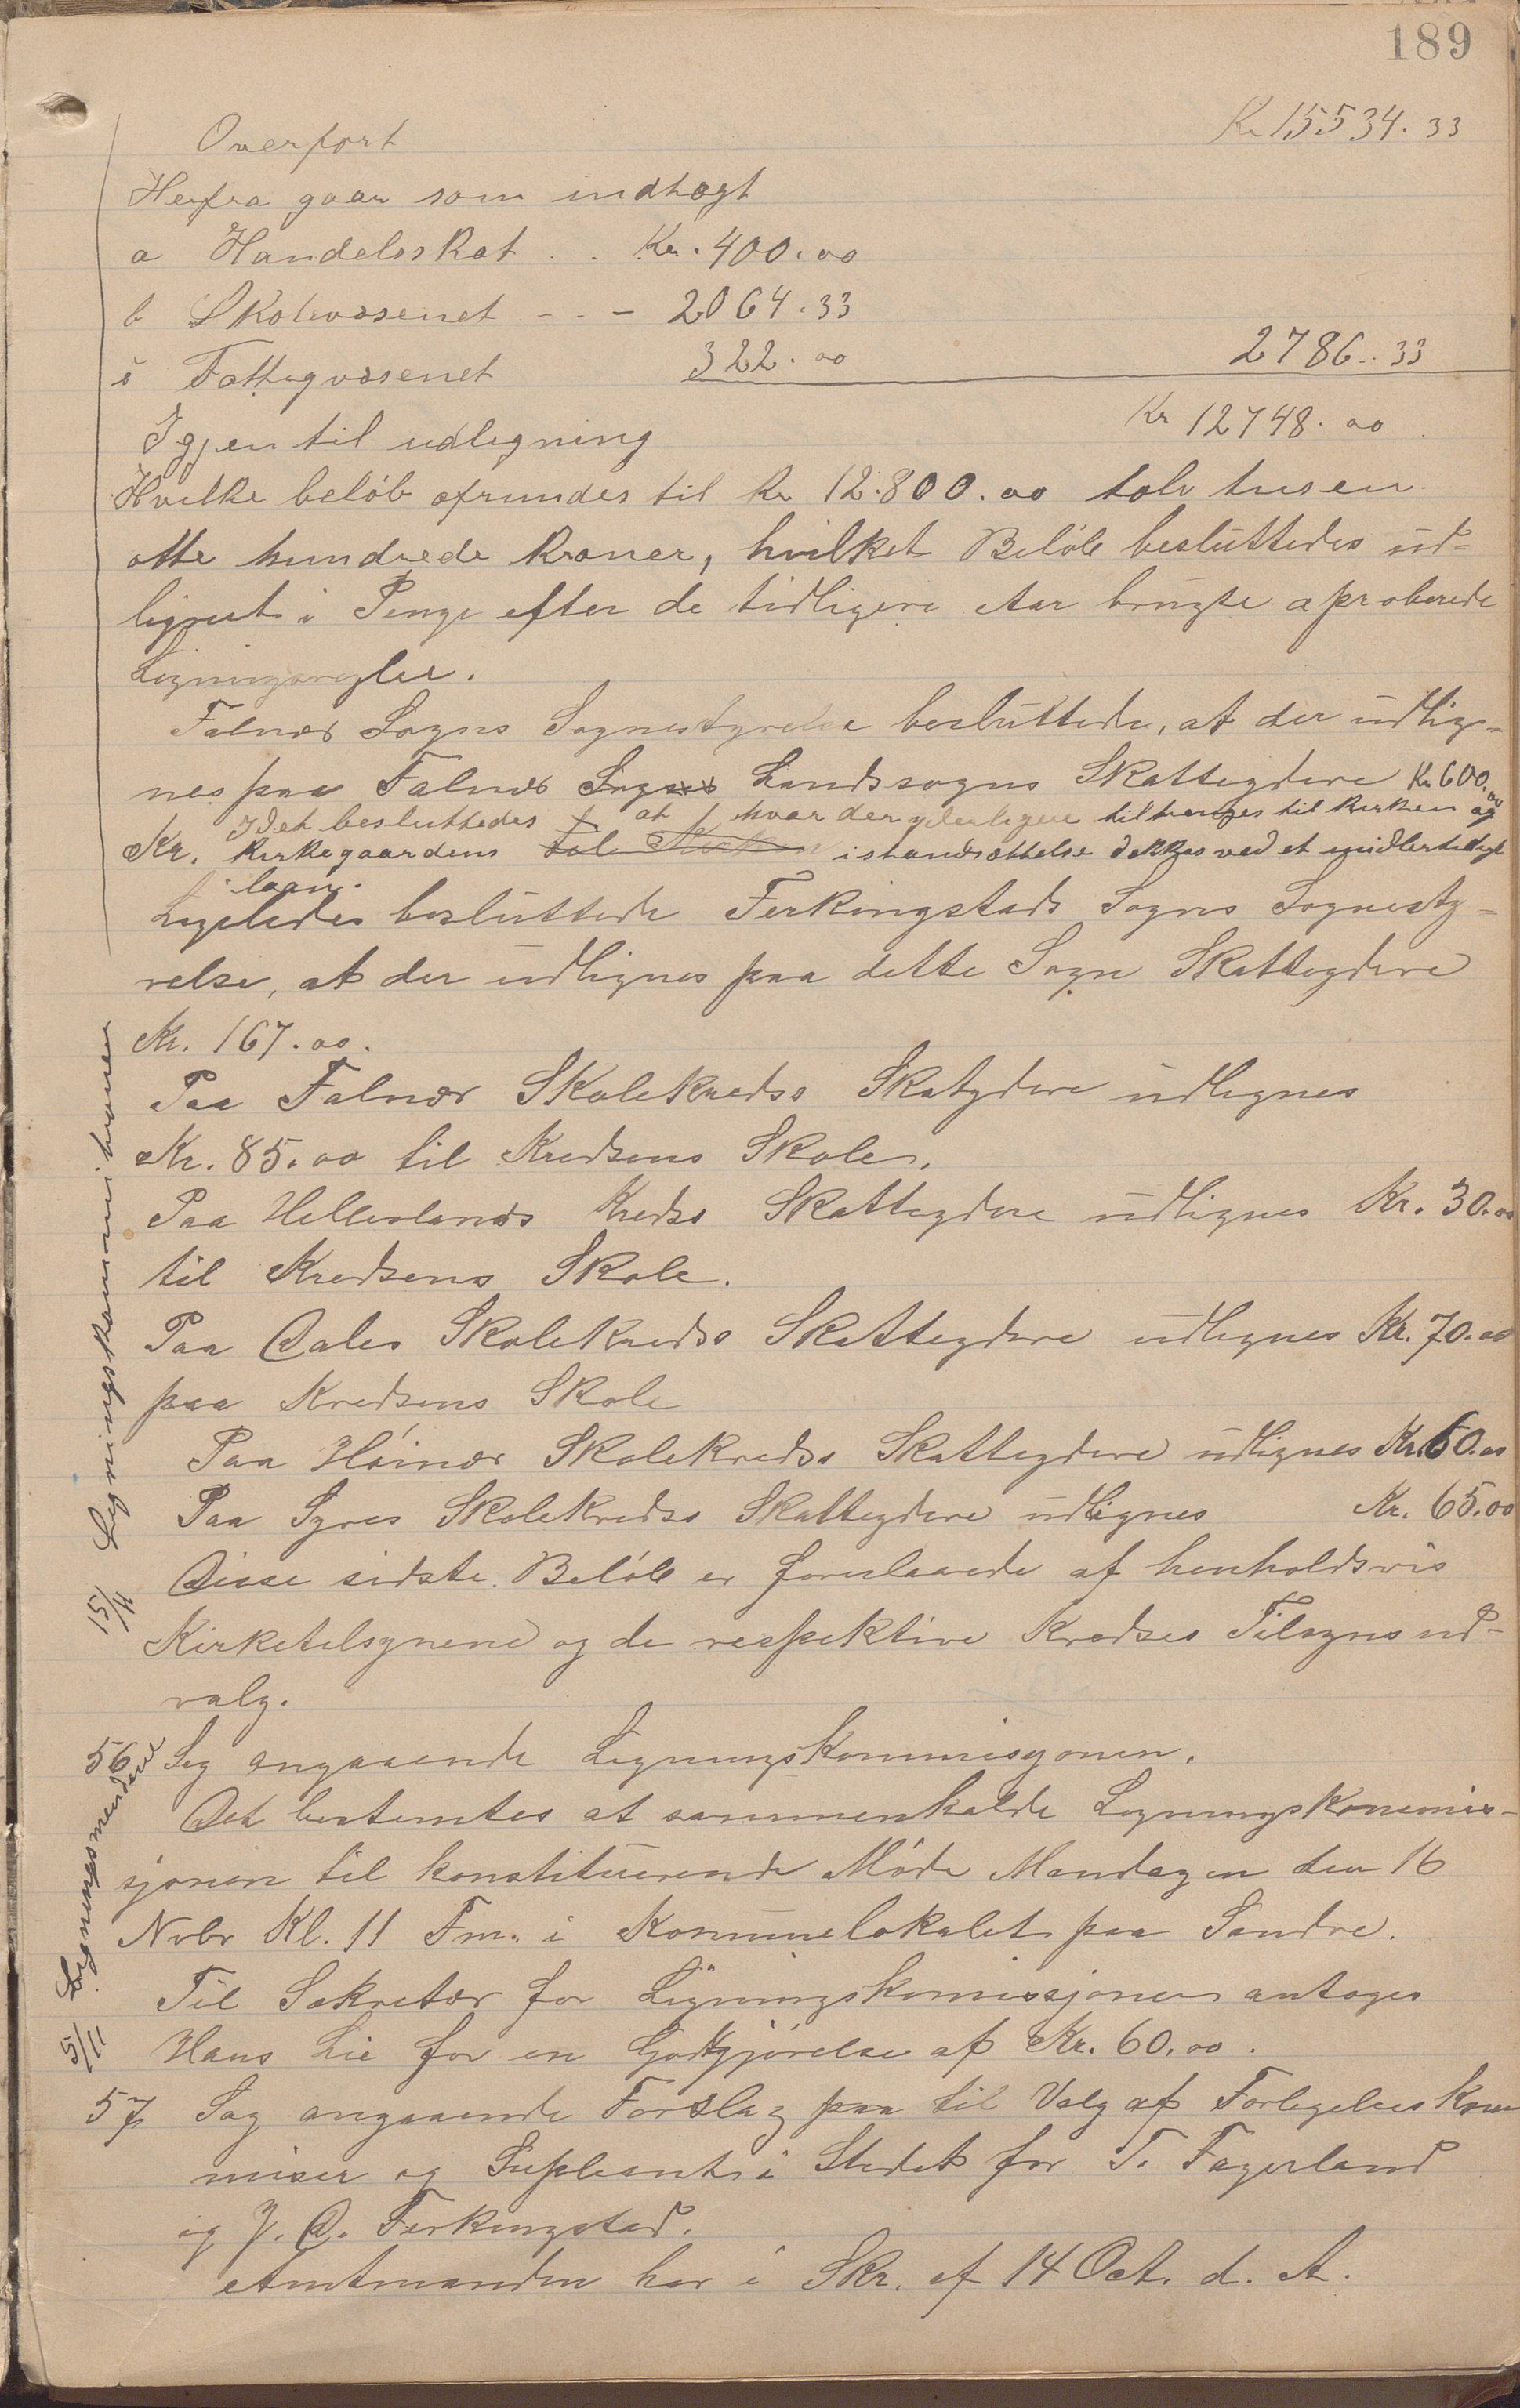 189
Overført Kr 15534.33
Herfra gaar som indtægt
a Handelsskat . . Kr. 400.00
b Skolevæsenet - . - 2064.33
c Fattigvæsenet 322.00 2786.33
Igjen til udligning Kr 12748.00
Hvilke beløb afrundes til kr 12.800.00 tolv tusen
otte hundrede kroner, hvilket Beløb besluttedes ud-
lignet i Penge efter de tidligere Aar brugte aproberede
Ligningsregler.
Falnes Sogns Sognestyrelse besluttede, at der udlig-
nes paa Falnes Sogns Landssogns Skatteydere Kr 600.00
Idet besluttedes at hvar der yderligere tiltrenges til kirken og
Kr. kirkegaardens istandsættelse dekkes ved et midlertidigt
laan.
Ligeledes besluttede Ferkingstads Sogns Sognesty-
relse, at der udlignes paa dette Sogn Skatteydere
Kr. 167.00.
Paa Falnes Skolekreds Skatydere udlignes
Kr. 85.00 til Kredsens Skole.
Paa Hillerslands Kreds Skatteydere udlignes Kr. 30.00
til Kredsens Skole.
Paa Dales Skolekreds Skatteydere udlignes Kr. 70.00
paa Kredsens Skole
Paa Høines Skolekreds Skatteydere udlignes Kr. 60.00
Paa Syres Skolekreds Skatteydere udlignes Kr. 65.00
Disse sidste Beløb er foreslaaede af henholdsvis
Kirketilsynene og de respektive Kredses Tilsynsud-
valg.
15/11 Ligningskommissionen
56 Sag angaaende Ligningskommisjonen.
Det bestemtes at sammenkalde Ligningskommis-
sjonen til konstituerende Møde Mandagen den 16
Nvbr Kl. 11 Fm. i Kommunelokalet paa Sandve.
Til Sekretær for Ligningskomissjonen antoges
Hans Lie for en Godtgjørelse af Kr. 60.00.
5/11 Ligningsmendene
57 Sag angaaende Forslag paa til Valg af Forligelseskom
misær og Supleant i Stedet for T. Fagerland
og J. D. Ferkingstad.
Amtmanden har i Skr. af 14 Oct. d. A.